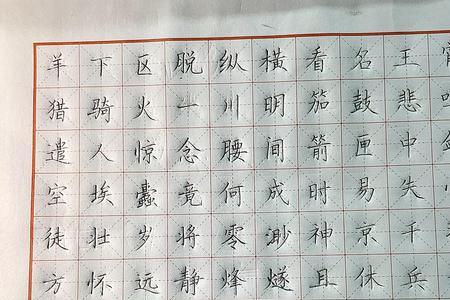 羊下区脱纵横看名王
猎骑火一川明笳鼓悲
遣人惊念腰间箭匣中
空埃蠹竟何成时易失
徒壮岁将零渺神京干
方怀远静烽燧且休兵